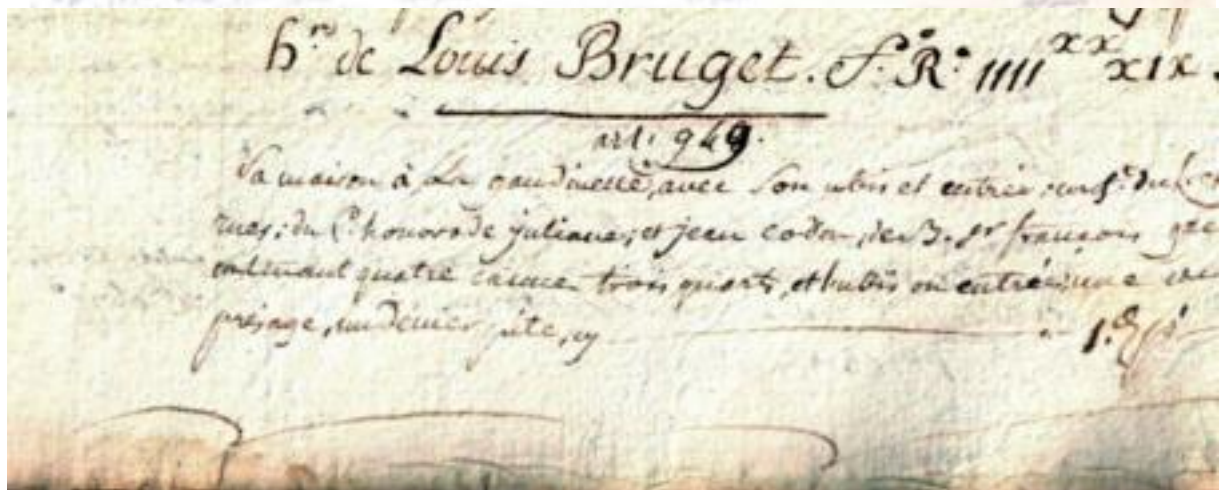 h.rs de Louis Bruget. f.o R.o IIII xx xix.
art. 949.
Sa maison à La avec son ubis et entrée du
rues; du honorade juliane; et jean codon, de B. Sr françois
contenant quatre canne trois quarts, et ou entrée une
présage, un denier pite, cy 1.d